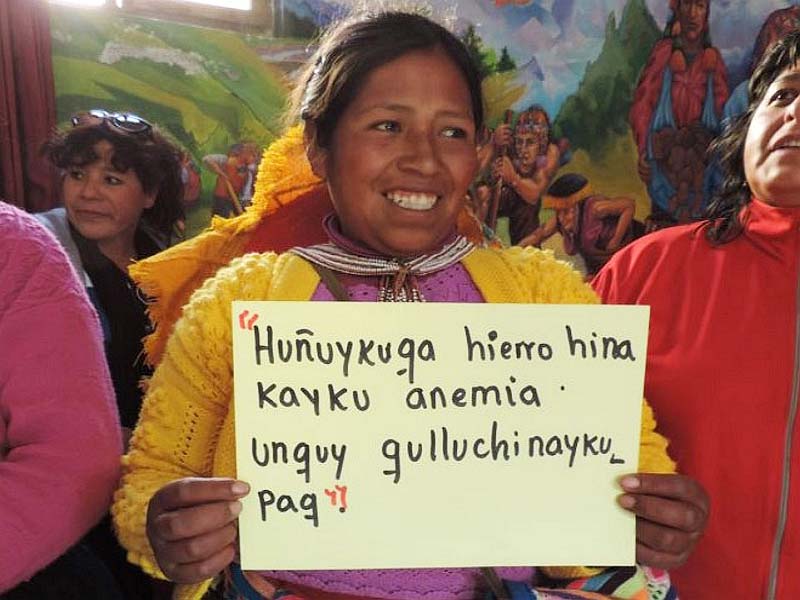 "Huñuykuqa hierro hina
kayku anemia.
unquy qulluchinayku_
paq".